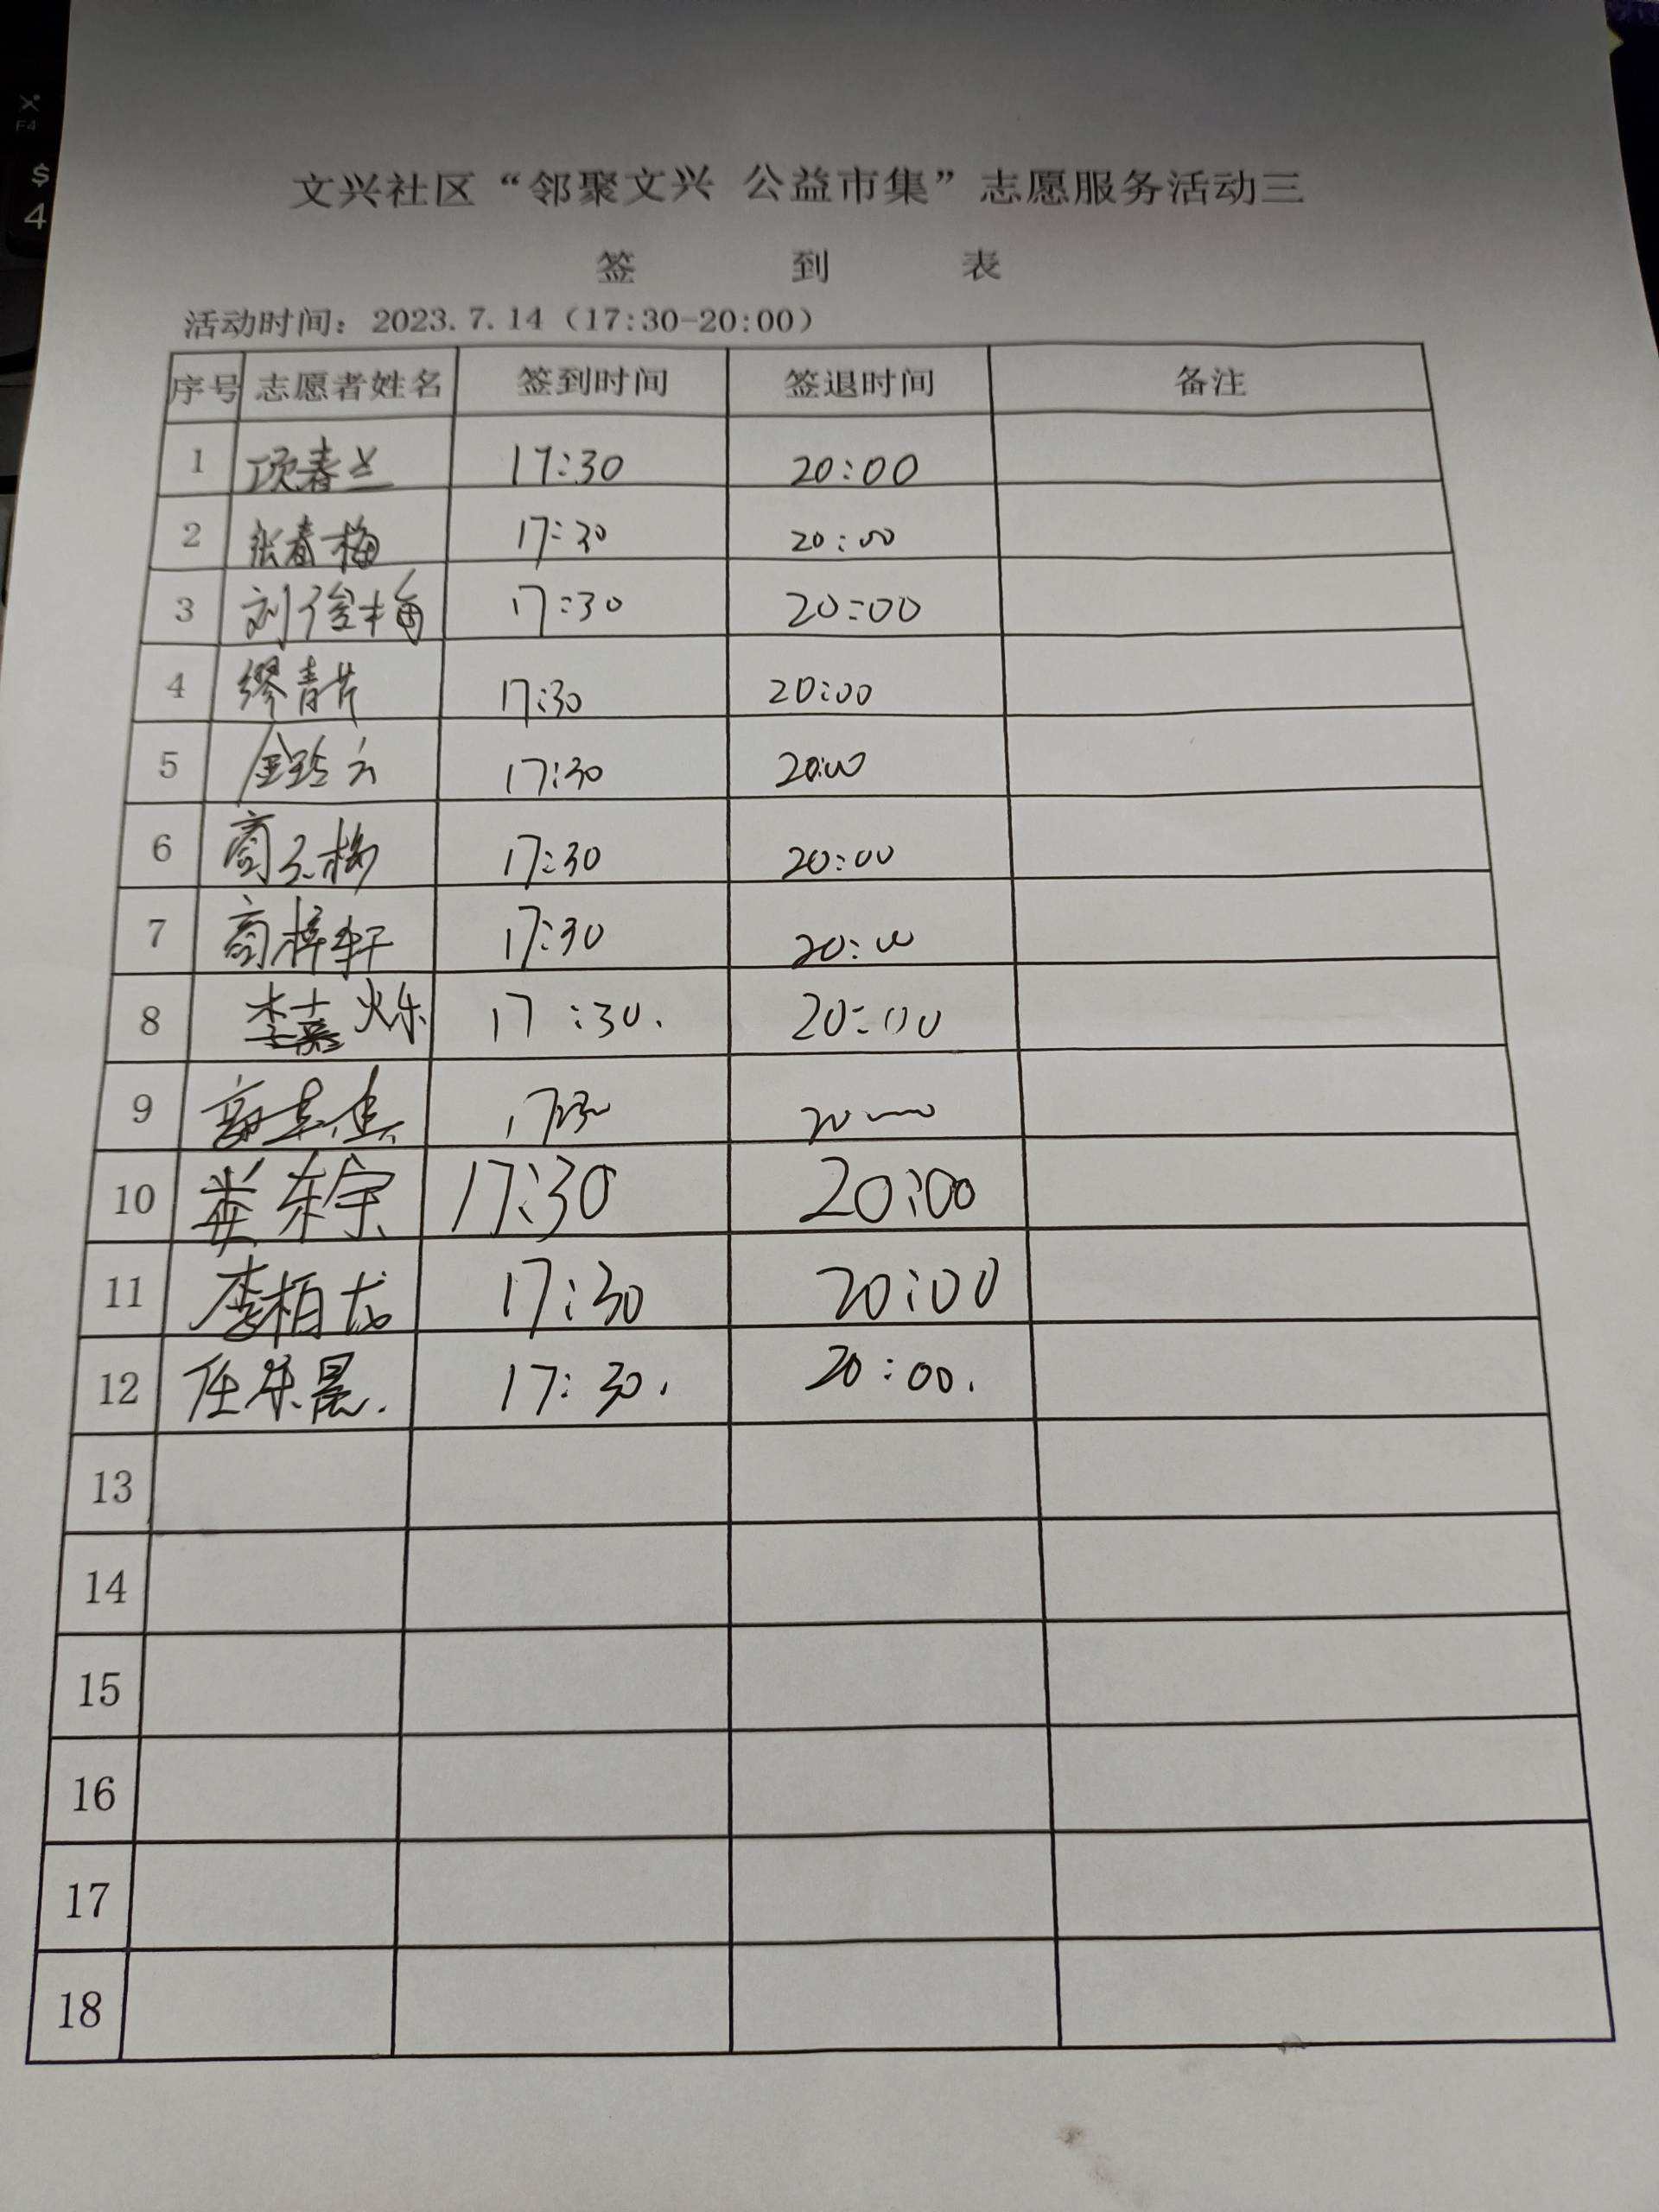 文兴社区“邻聚文兴 公益市集”志愿服务活动三
签 到 表
活动时间：2023.7.14（17:30-20:00）
序号 志愿者姓名 签到时间 签退时间 备注
1 项春兰 17:30 20:00
2 张春梅 17:30 20:00
3 刘俊梅 17:30 20:00
4 缪青 17:30 20:00
5 金玲云 17:30 20:00
6 17:30 20:00
7 梓轩 17:30 20:00
8 李嘉烁 17:30. 20:00
9 17:30
10 娄东宇 17:30 20:00
11 李柏龙 17:30 20:00
12 任乐晨. 17:30. 20:00.
13
14
15
16
17
18
X
F4
$
4